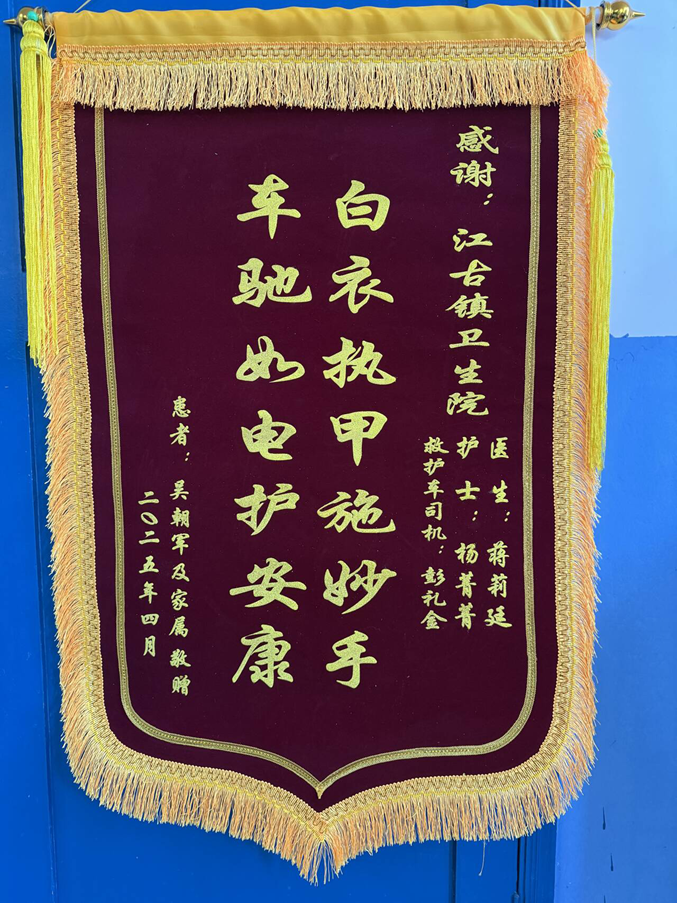 感谢：江古镇卫生院
医生：蒋莉廷
护士：杨菁菁
救护车司机：彭礼金
白衣执甲施妙手
车驰如电护安康
患者：吴朝军及家属敬赠
二〇二五年四月